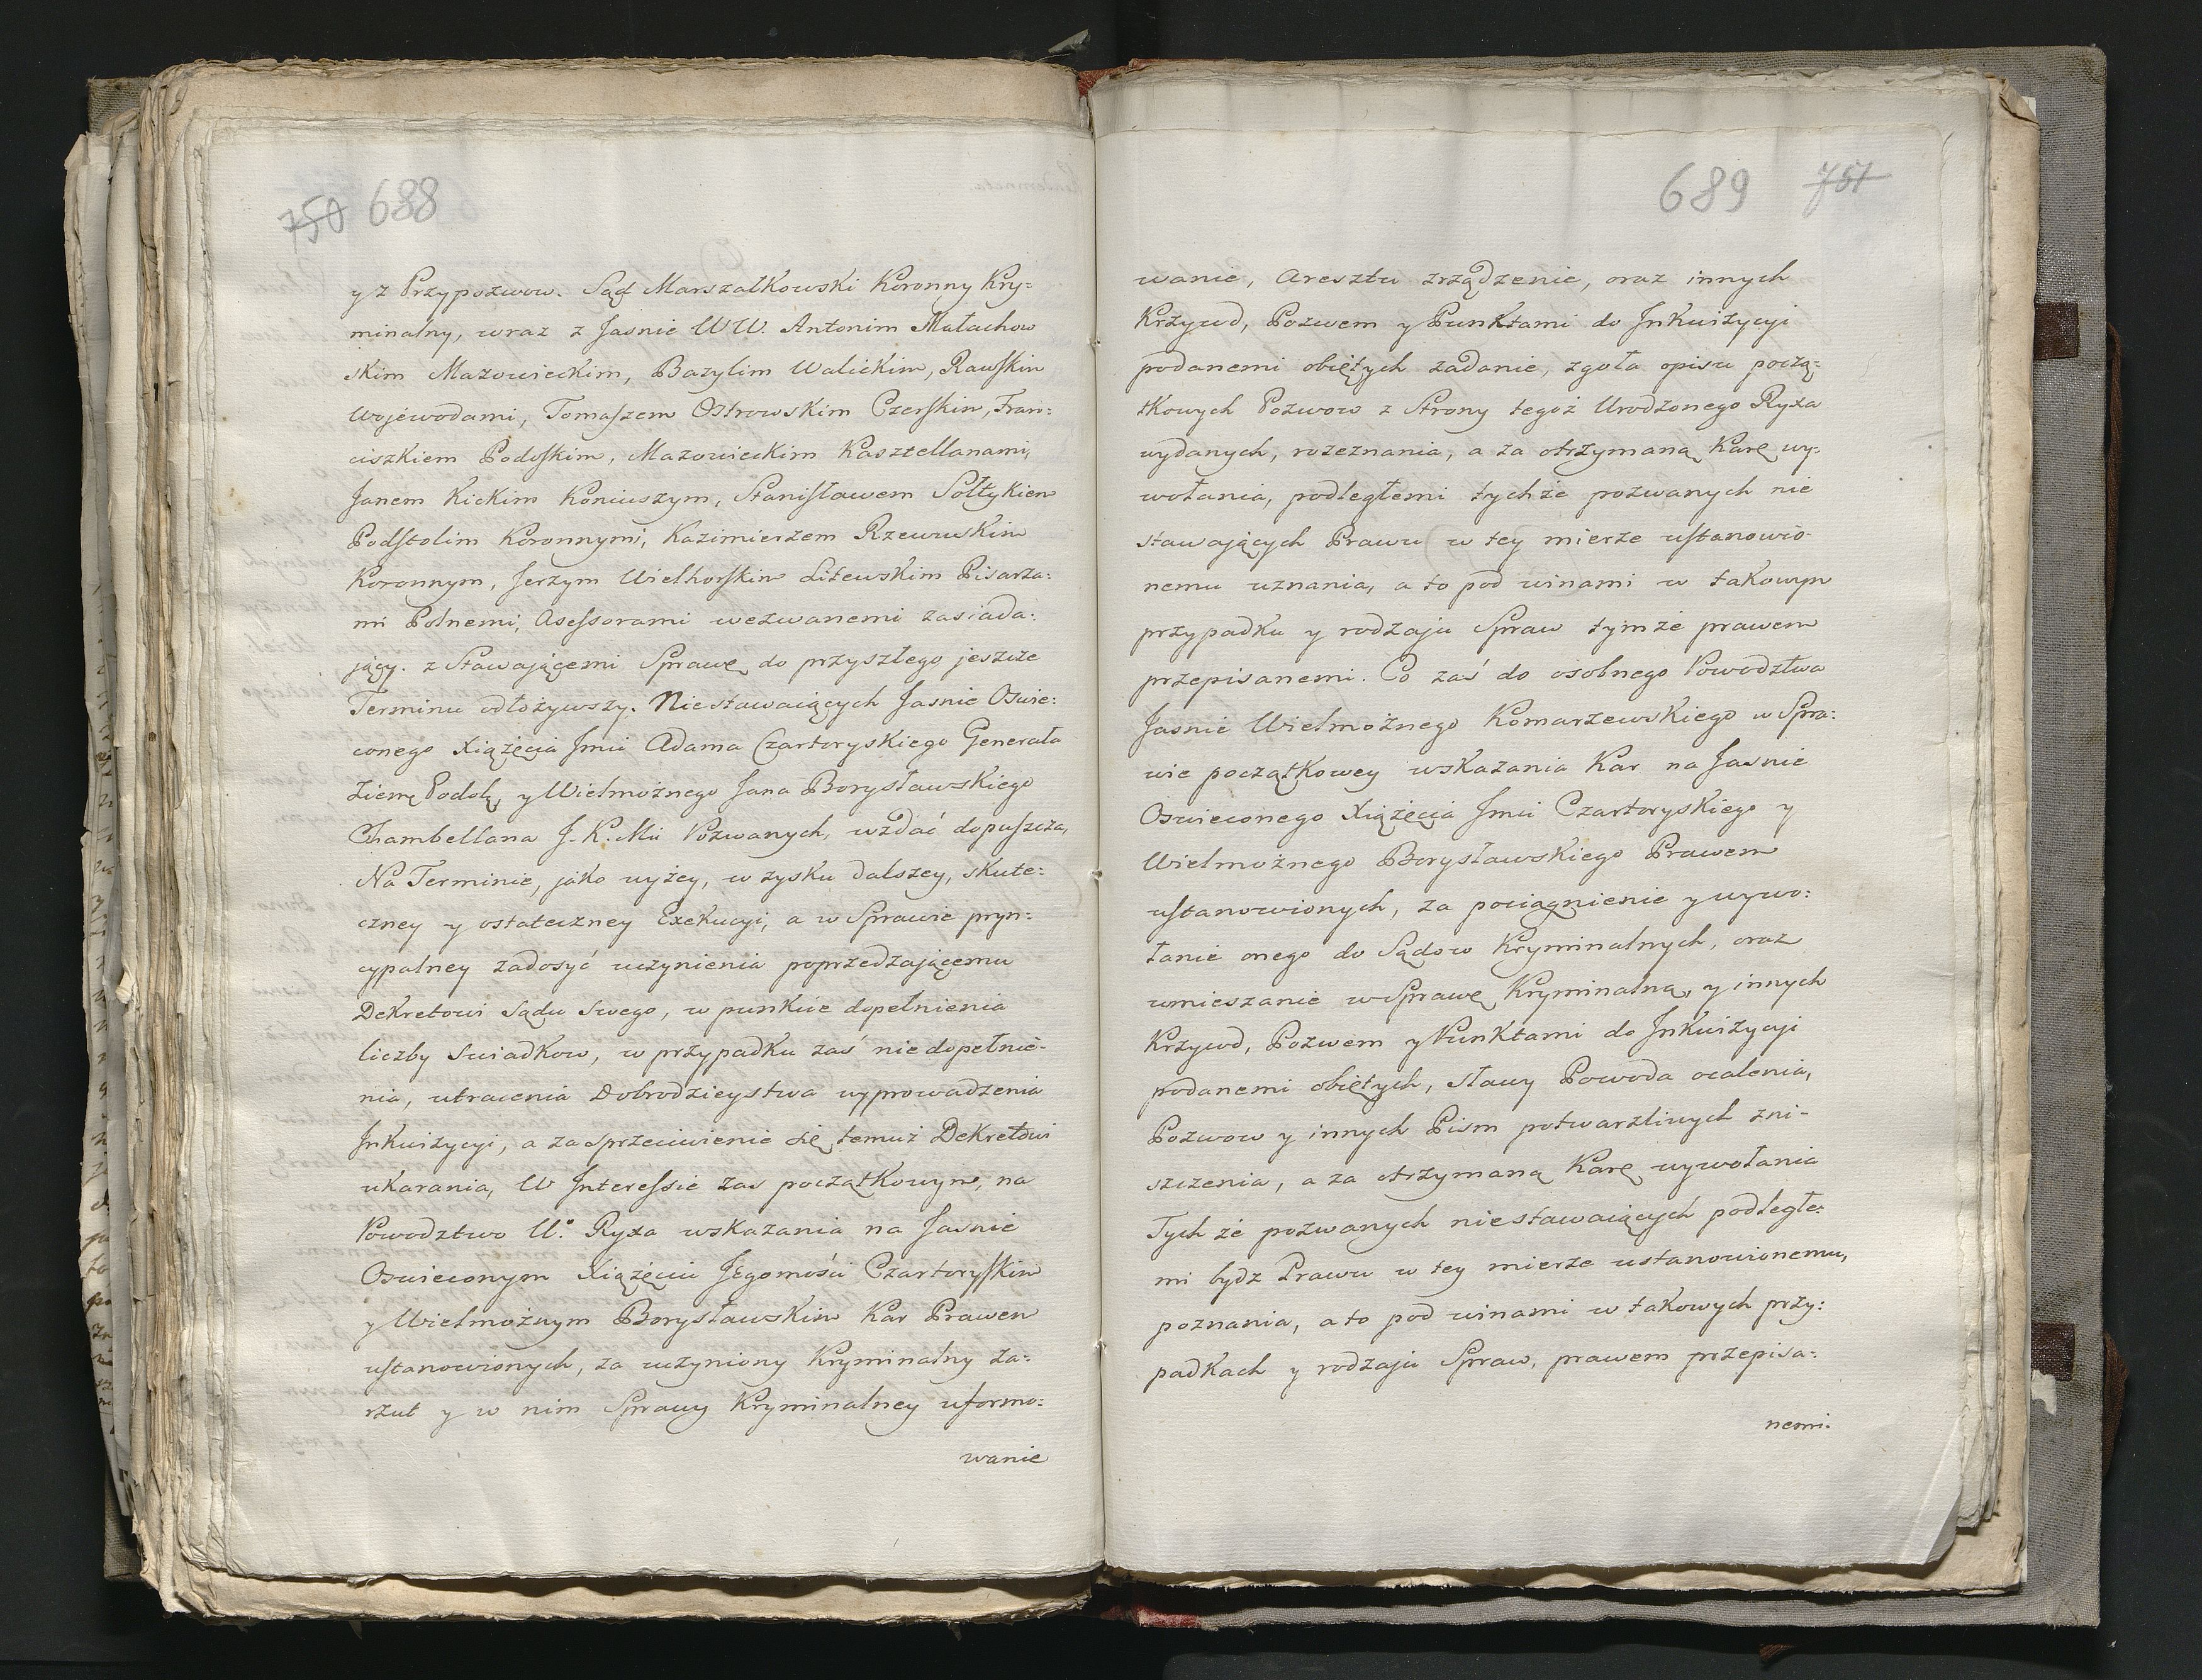 750 688
y z Przypozwow. Sąd Marszałkowski Koronny Kry=
minalny, wraz z Jasnie WW. Antonim Małachow
skim Mazowieckim, Bazylim Walickim, Rawskim
Wojewodami, Tomaszem Ostrowskim Czerskim, Fran=
ciszkiem Podoskim, Mazowieckim Kasztellanami,
Janem Kickim Koniuszym, Stanisławem Sołtykiem
Podstolim Koronnymi, Kazimierzem Rzewuskim
Koronnym, Jerzym Wielhorskim Litewskim Pisarza=
mi Polnemi, Asessorami wezwanemi zasiada=
jący. z Stawającemi Sprawę do przyszłego jeszcze
Terminu odłożywszy. Niestawaiących Jasnie Oswie=
conego Xiążęcia Jmci Adama Czartoryskiego Generała
Ziem Podol, y Wielmożnego Jana Borysławskiego
Chambellana J. K. Mci Pozwanych, wzdać dopuszcza,
Na Terminie, jako wyżey, w zysku dalszey, skute=
czney y ostateczney Exekucyi, a w Sprawie pryn=
cypalney zadosyć uczynienia poprzedzającemu
Dekretowi Sądu Swego, w punkcie dopełnienia
liczby Swiadkow, w przypadku zaś niedopełnie=
nia, utracenia Dobrodzieystwa wyprowadzenia
Inkwizycyi, a za sprzeciwienie się temuż Dekretowi
ukarania, W Interessie zas początkowym, na
Powodztwo U.º Ryxa wskazania na Jasnie
Oswieconym Xiążęciu Jegomości Czartoryskim
y Wielmożnym Borysławskim Kar Prawem
ustanowionych, za uczyniony Kryminalny za=
rzut y w nim Sprawy Kryminalney uformo=
wanie
689 751
wanie, Aresztu zrządzenie, oraz innych
Krzywd, Pozwem y Punktami do Inkwizycyi
podanemi obiętych zadanie, zgoła opisu począ=
tkowych Pozwow z Strony tegoż Urodzonego Ryxa
wydanych, rozeznania, a za otrzymaną Karę wy=
wołania, podległemi tychże pozwanych nie
stawających Prawu w tey mierze ustanowio=
nemu uznania, a to pod winami w takowym
przypadku y rodzaju Spraw tymże prawem
przepisanemi. Co zaś do osobnego Powodztwa
Jasnie Wielmożnego Komarzewskiego w Spra=
wie początkowey wskazania Kar na Jasnie
Oswieconego Xiążęcia Jmci Czartoryskiego y
Wielmożnego Borysławskiego Prawem
ustanowionych, za pociągnienie y wywo=
łanie onego do Sądow Kryminalnych, oraz
umieszanie w Sprawę Kryminalną, y innych
Krzywd, Pozwem y Punktami do Inkwizycyi
podanemi obiętych, sławy Powoda ocalenia,
Pozwow y innych Pism potwarzliwych zni=
szczenia, a za otrzymaną Karę wywołania
Tychże pozwanych niestawaiących podległe=
mi bydz Prawu w tey mierze ustanowionemu,
poznania, a to pod winami w takowych przy=
padkach y rodzaju Spraw, prawem przepisa=
nemi.